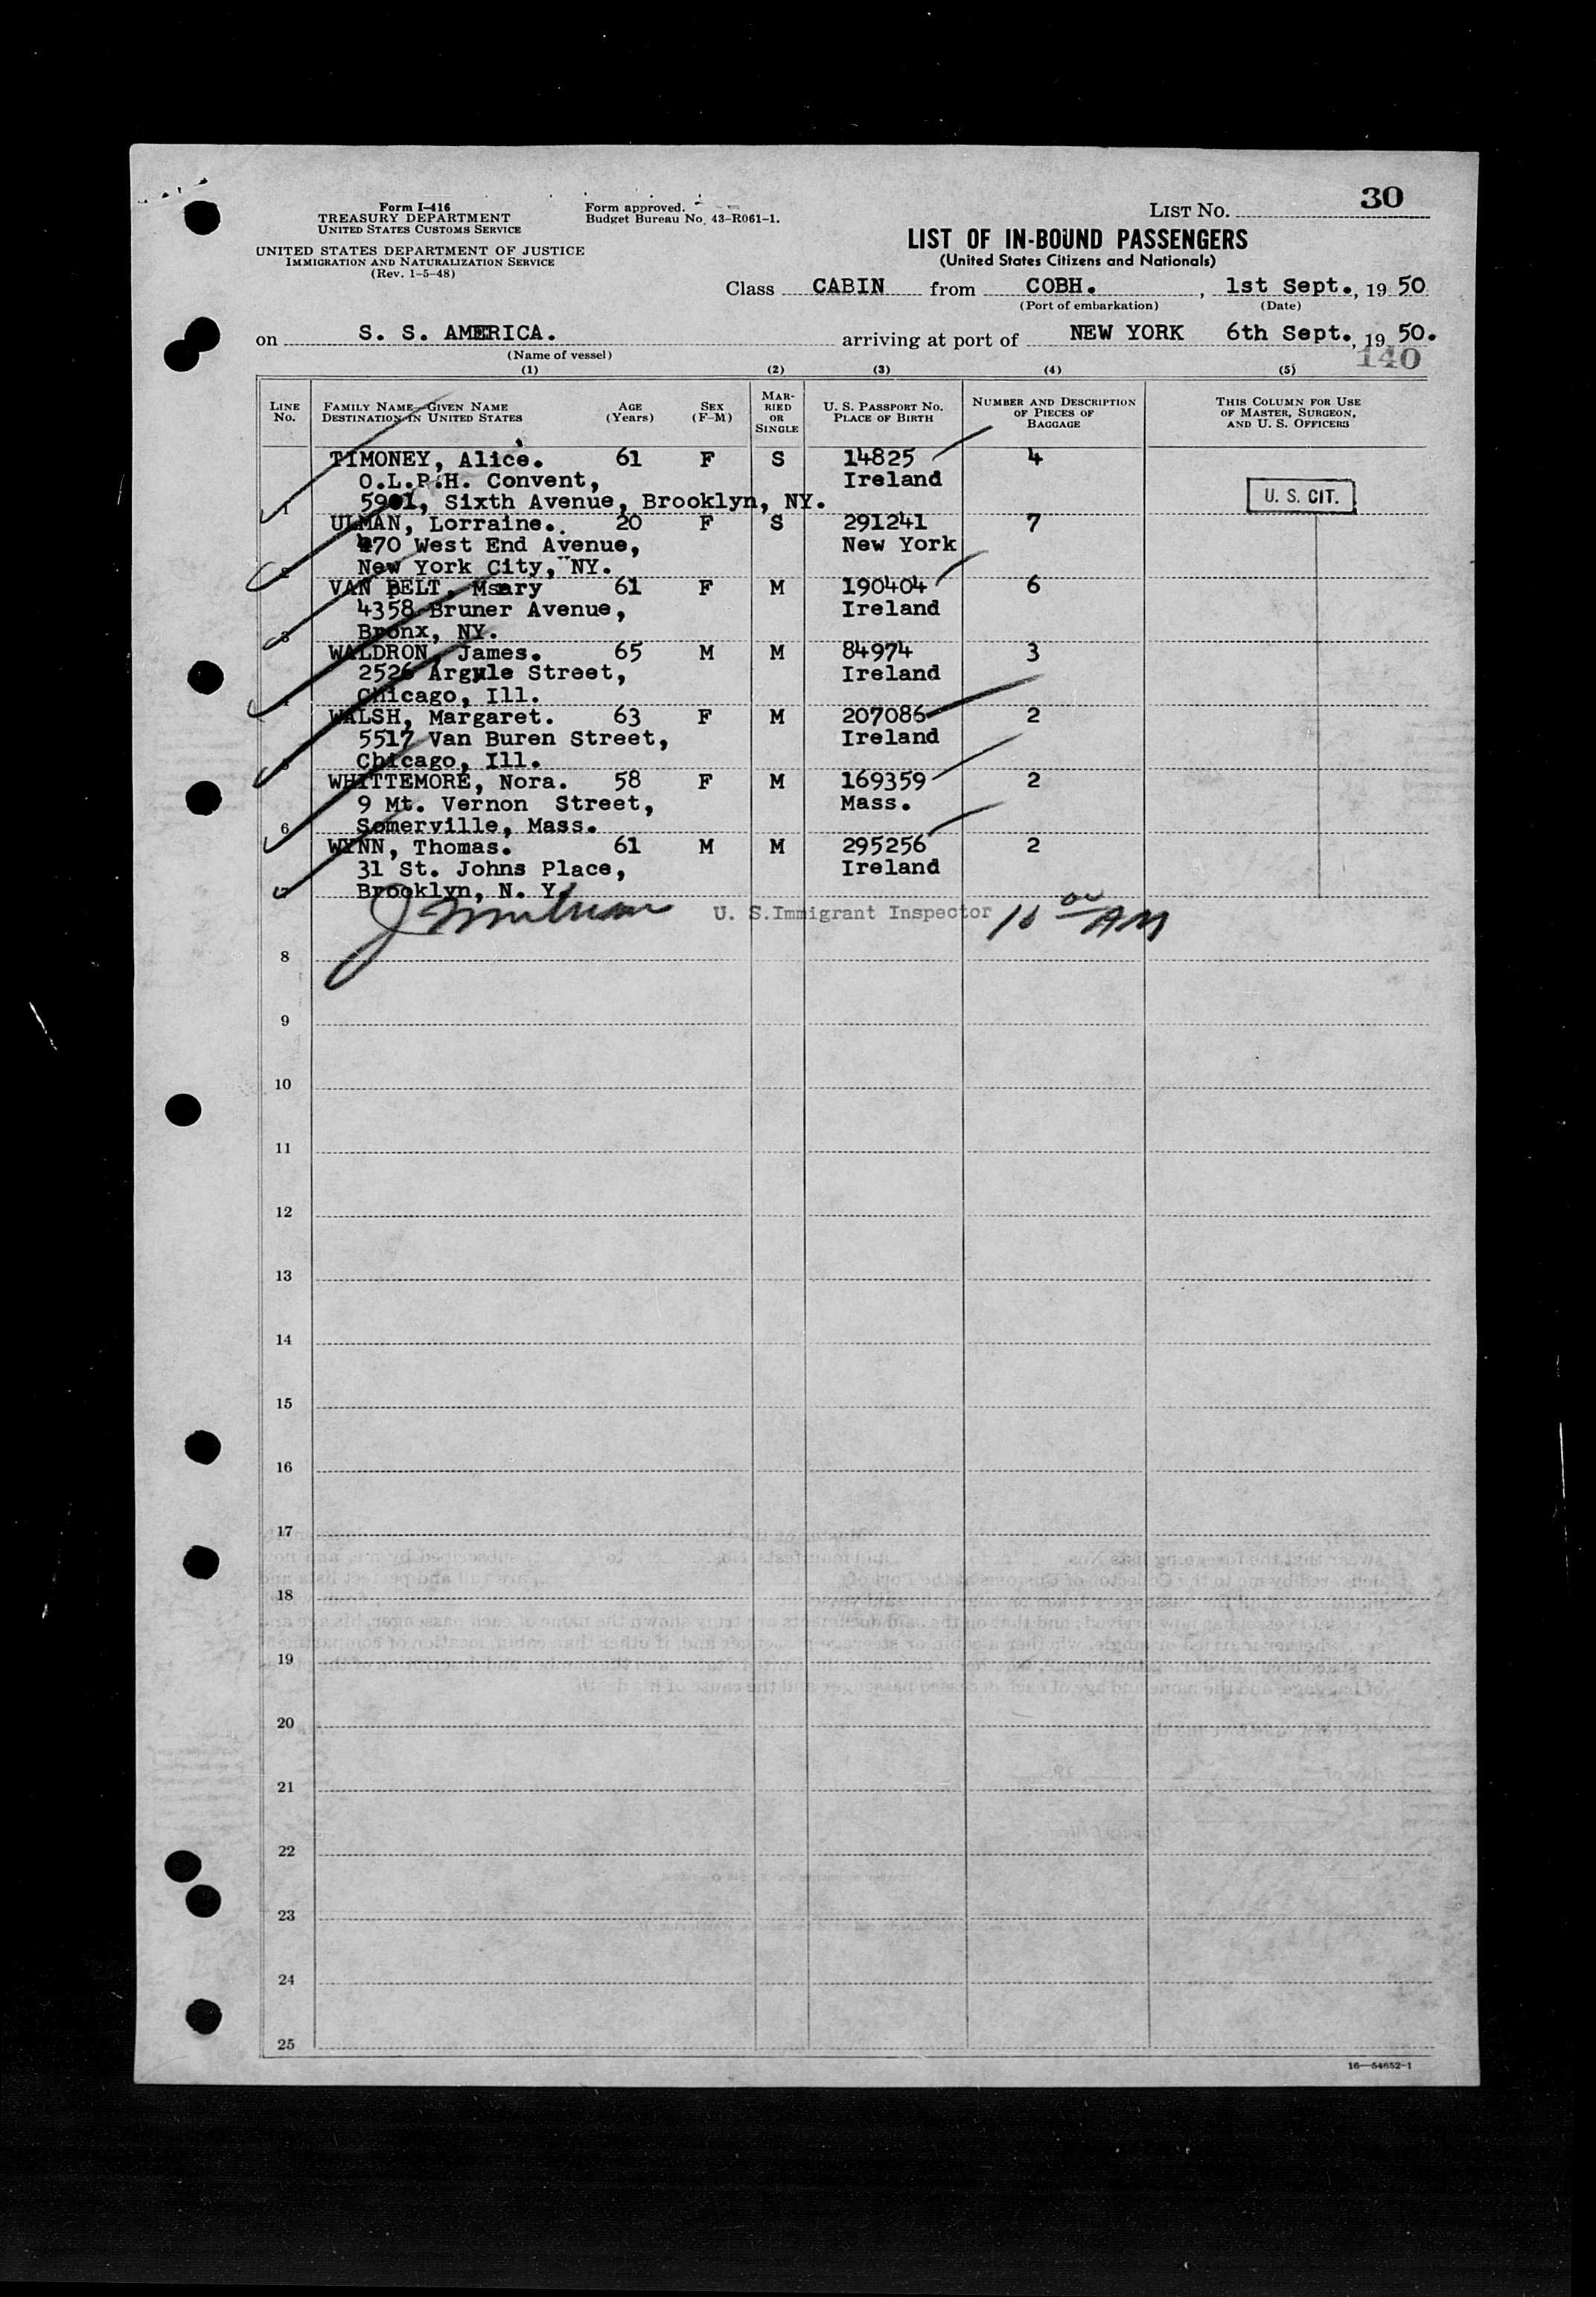 Form I-416
TREASURY DEPARTMENT
UNITED STATES CUSTOMS SERVICE
UNITED STATES DEPARTMENT OF JUSTICE
IMMIGRATION AND NATURALIZATION SERVICE
(Rev. 1-5-48)
Form approved.
Budget Bureau No. 43-R061-1.
LIST NO. 30
LIST OF IN-BOUND PASSENGERS
(United States Citizens and Nationals)
Class CABIN from COBH. , 1st Sept., 19 50
(Port of embarkation) (Date)
on S. S. AMERICA. arriving at port of NEW YORK 6th Sept., 19 50.
(Name of vessel)
140
(1) (2) (3) (4) (5)
LINE NO. FAMILY NAME—GIVEN NAME DESTINATION IN UNITED STATES AGE (Years) SEX (F-M) MARRIED OR SINGLE U. S. PASSPORT NO. PLACE OF BIRTH NUMBER AND DESCRIPTION OF PIECES OF BAGGAGE THIS COLUMN FOR USE OF MASTER, SURGEON, AND U. S. OFFICERS
TIMONEY, Alice. 61 F S 14825 4
O.L.P.H. Convent, Ireland
1 5901, Sixth Avenue, Brooklyn, NY. U. S. CIT.
ULMAN, Lorraine. 20 F S 291241 7
470 West End Avenue, New York
2 New York City, NY.
VAN PELT, Mary 61 F M 190404 6
4358 Bruner Avenue, Ireland
3 Bronx, NY.
WALDRON, James. 65 M M 84974 3
2526 Argyle Street, Ireland
4 Chicago, Ill.
WALSH, Margaret. 63 F M 207086 2
5517 Van Buren Street, Ireland
5 Chicago, Ill.
WHITTEMORE, Nora. 58 F M 169359 2
9 Mt. Vernon Street, Mass.
6 Somerville, Mass.
WYNN, Thomas. 61 M M 295256 2
31 St. Johns Place, Ireland
7 Brooklyn, N. Y.
U. S. Immigrant Inspector 10 00 AM
8
9
10
11
12
13
14
15
16
17
18
19
20
21
22
23
24
25
16—54652-1